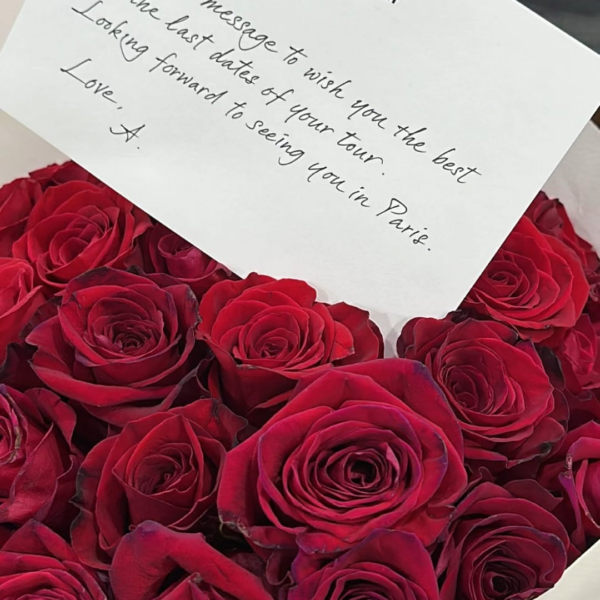 message to wish you the best
the last dates of your tour.
Looking forward to seeing you in Paris.
Love,
A.